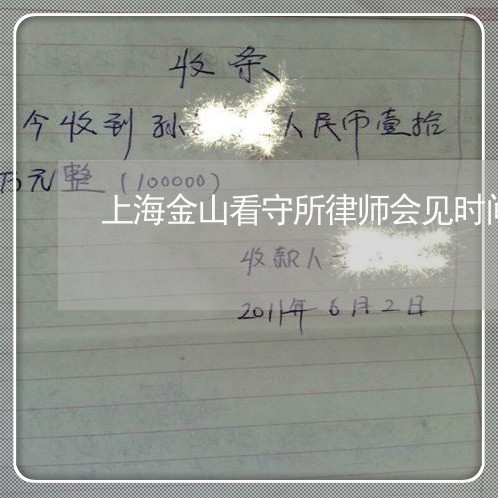 收条
今收到孙 人民币壹拾
万元整（100000）
上海金山看守所律师会见时间
收款人
2011年6月2日